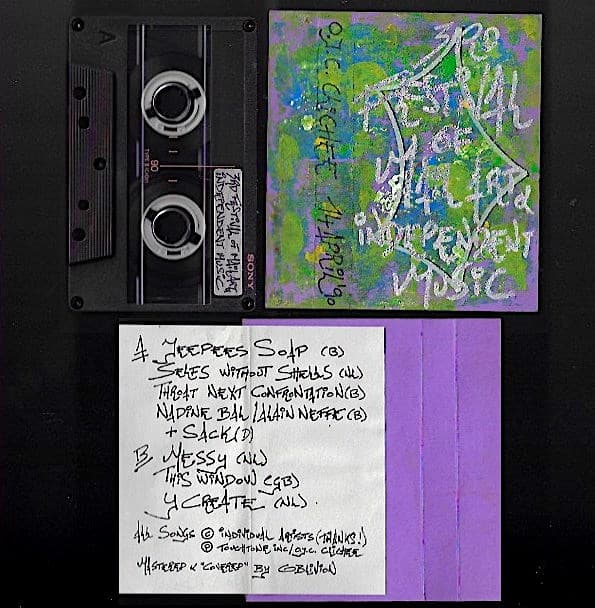 A
90
SONY
3RD FESTIVAL OF MAIL ART &
INDEPENDENT MUSIC
3RD
FESTIVAL
OF
MAIL ART &
INDEPENDENT
MUSIC
O.J.C. CLICHEE 14 APRIL '90
A JEEPEES SOAP (B)
SELES WITHOUT SHELLS (NL)
THROAT NEXT CONFRONTATION (B)
NADINE BAL / ALAIN NEFFE (B)
+ SACK (D)
B MESSY (NL)
THIS WINDOW (GB)
Y CREATE (NL)
ALL SONGS © INDIVIDUAL ARTISTS (THANKS!)
℗ TOUCHTONE INC/O.J.C. CLICHEE
MASTERED & "COVERED" BY OBLIVION